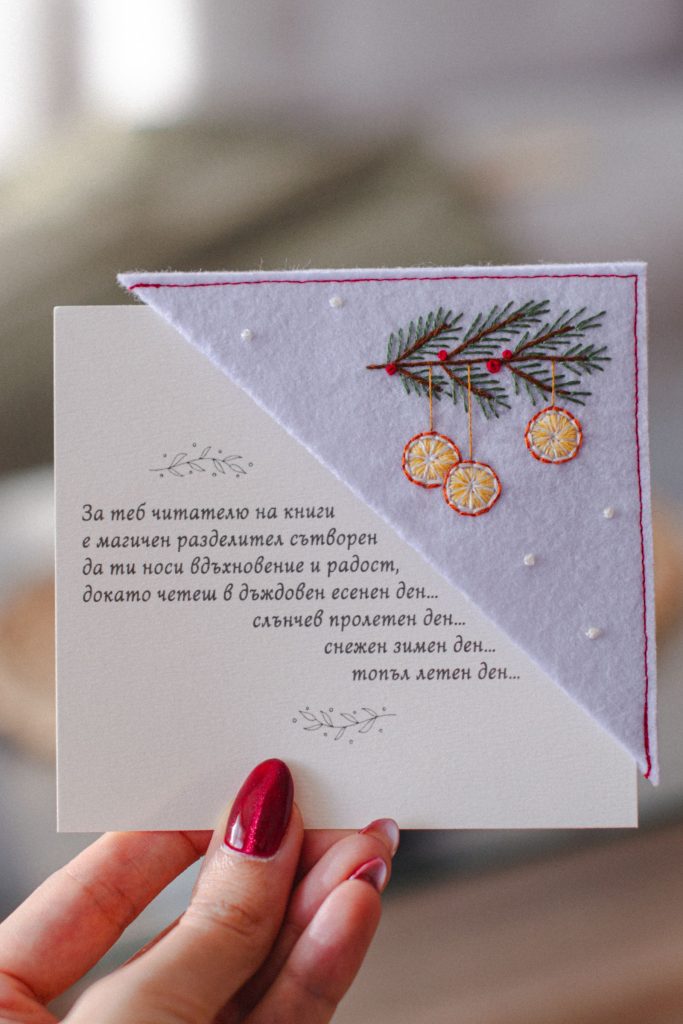 За теб читателю на книги
е магичен разделител сътворен
да ти носи вдъхновение и радост,
докато четеш в дъждовен есенен ден...
слънчев пролетен ден...
снежен зимен ден...
топъл летен ден...